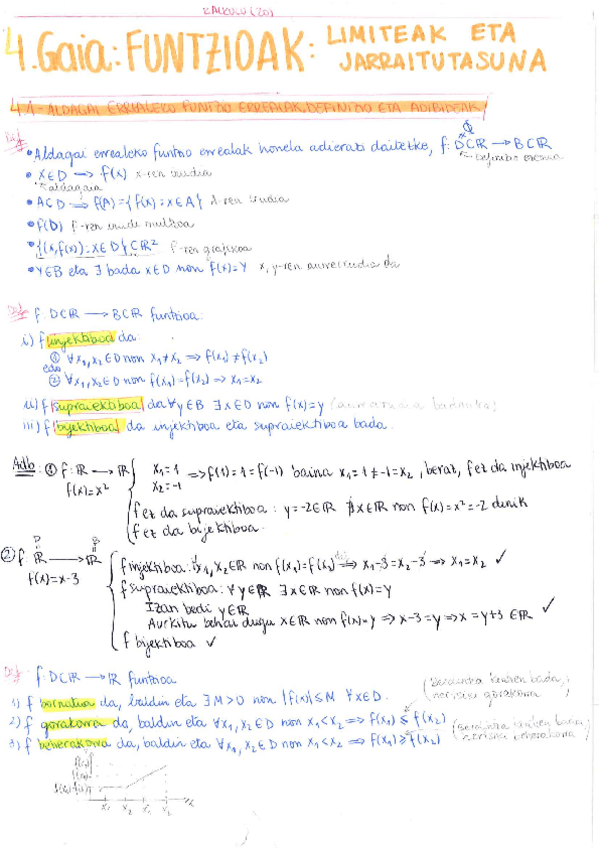 KALKULU (20)
4. Gaia: FUNTZIOAK: LIMITEAK ETA JARRAITUTASUNA
4.1- ALDAGAI ERREALEKO FUNTZIO ERREALAK. DEFINIZIO ETA ADIBIDEAK
Def
• Aldagai errealeko funtzio errealak honela adierazi daitezke, f: D⊂ℝ → B⊂ℝ
• x∈D → f(x) x-ren irudia
aldagaia
• A⊂D ⇒ f(A)={f(x) : x∈A} A-ren irudia
• f(D) f-ren irudi multzoa
• {(x, f(x)) : x∈D}⊂ℝ² f-ren grafikoa
• y∈B eta ∃ bada x∈D non f(x)=y x, y-ren aurreirudia da
Def f: D⊂ℝ → B⊂ℝ funtzioa:
i) f injektiboa da:
① ∀x₁,x₂∈D non x₁≠x₂ ⇒ f(x₁)≠f(x₂)
edo
② ∀x₁,x₂∈D non f(x₁)=f(x₂) ⇒ x₁=x₂
ii) f supraiektiboa da ∀y∈B ∃x∈D non f(x)=y
iii) f bijektiboa da injektiboa eta supraiektiboa bada.
Adb: ① f: ℝ → ℝ x₁=1 ⇒ f(1)=1=f(-1) baina x₁=1≠-1=x₂, beraz, f ez da injektiboa
f(x)=x² x₂=-1
f ez da supraiektiboa: y=-2∈ℝ ∄x∈ℝ non f(x)=x²=-2 denik
f ez da bijektiboa.
② f: ℝ → ℝ f injektiboa: ∀x₁,x₂∈ℝ non f(x₁)=f(x₂) ⇒ x₁-3=x₂-3 ⇒ x₁=x₂ ✓
f(x)=x-3 f supraiektiboa: ∀y∈ℝ ∃x∈ℝ non f(x)=y
Izan bedi y∈ℝ
Aurkitu behar dugu x∈ℝ non f(x)=y ⇒ x-3=y ⇒ x=y+3∈ℝ ✓
f bijektiboa ✓
Def f: D⊂ℝ → ℝ funtzioa
1) f bornatua da, baldin eta ∃M>0 non |f(x)|≤M ∀x∈D.
2) f gorakorra da, baldin eta ∀x₁,x₂∈D non x₁<x₂ ⇒ f(x₁)≤f(x₂)
3) f beherakorra da, baldin eta ∀x₁,x₂∈D non x₁<x₂ ⇒ f(x₁)≥f(x₂)
x₁ x₂ x₁ x₂